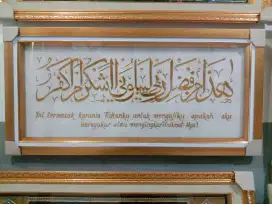 هذا من فضل ربي ليبلوني أأشكر أم أكفر
Ini termasuk karunia Tuhanku untuk mengujiku apakah aku
bersyukur atau mengingkari nikmat-Nya